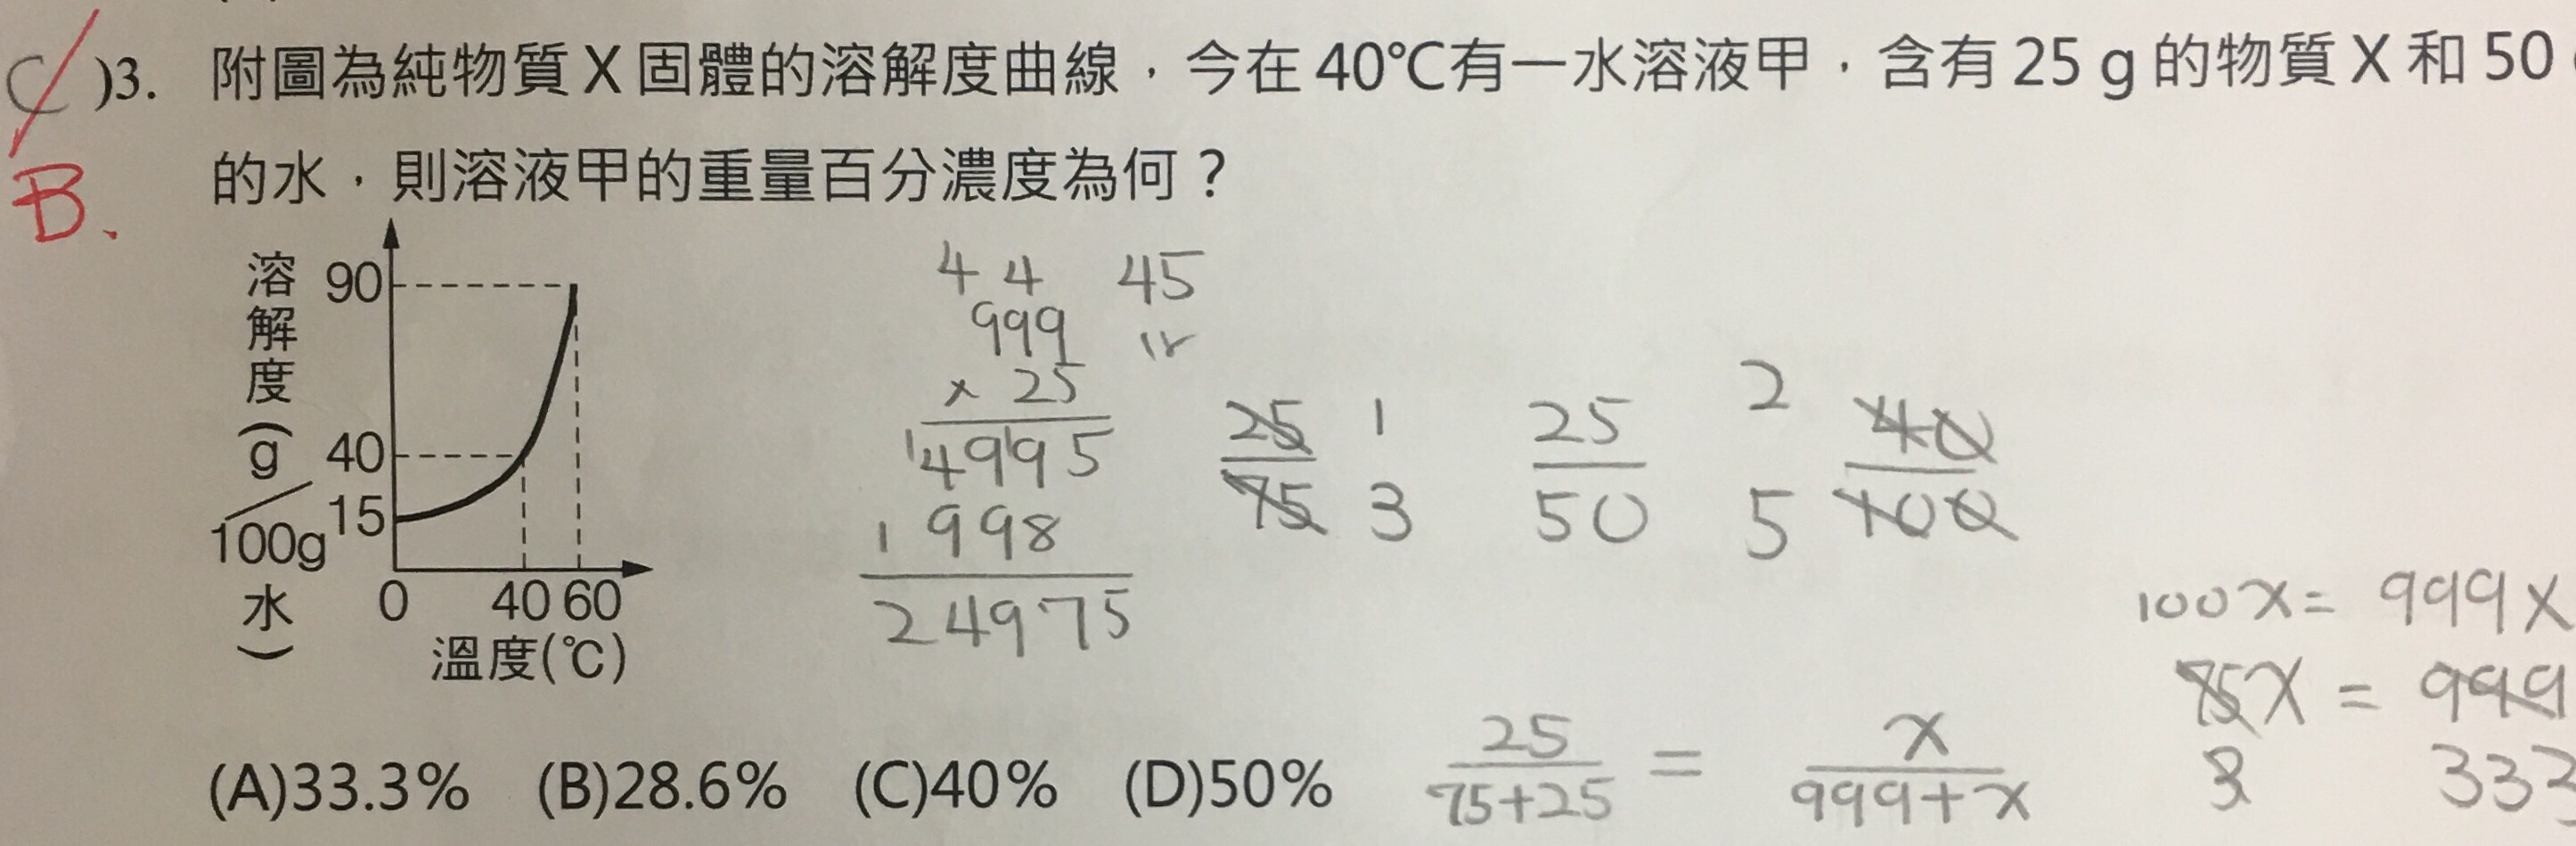 C )3. 附圖為純物質X固體的溶解度曲線，今在40℃有一水溶液甲，含有25 g的物質X和50
B. 的水，則溶液甲的重量百分濃度為何？
溶解度(g/100g水)
90
40
15
0 40 60
溫度(℃)
4 4
999
× 25
4995
1998
24975
45
25 1
75 3
25
50
2 40
5 100
100x = 999x
75x = 999
3 333
25/75+25 = x/999+x
(A)33.3% (B)28.6% (C)40% (D)50%